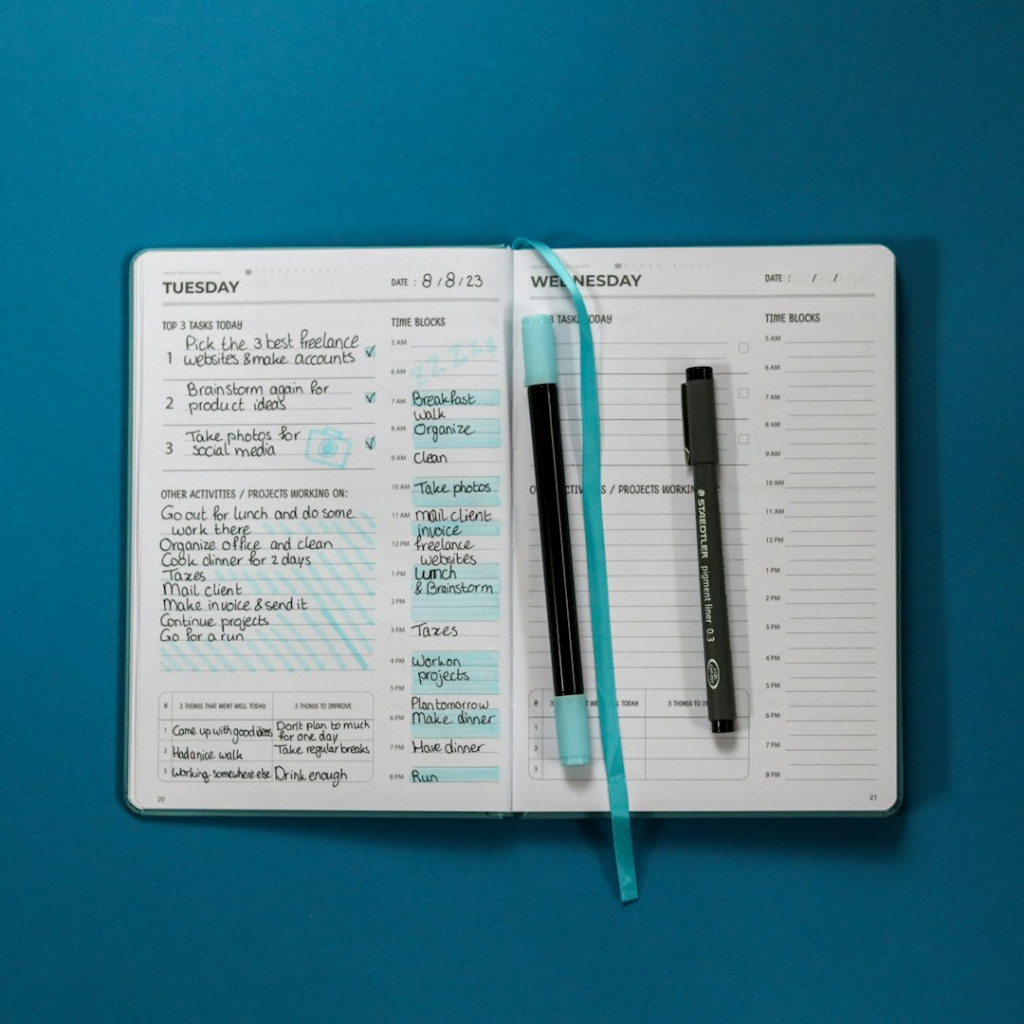 TUESDAY
DATE : 8/8/23
TOP 3 TASKS TODAY
1 Pick the 3 best freelance
websites & make accounts
2 Brainstorm again for
product ideas
3 Take photos for
social media
OTHER ACTIVITIES / PROJECTS WORKING ON:
Go out for lunch and do some
work there
Organize office and clean
Cook dinner for 2 days
Taxes
Mail client
Make invoice & send it
Continue projects
Go for a run
# 3 THINGS THAT WENT WELL TODAY 3 THINGS TO IMPROVE
1 Came up with good ideas Don't plan to much
for one day
2 Had a nice walk Take regular breaks
3 Working somewhere else Drink enough
20
TIME BLOCKS
5 AM
zzzzz
6 AM
7 AM Breakfast
walk
8 AM Organize
9 AM Clean
10 AM Take photos
11 AM Mail client
invoice
12 PM freelance
websites
1 PM Lunch
& Brainstorm
2 PM
3 PM Taxes
4 PM Work on
projects
5 PM
Plan tomorrow
6 PM Make dinner
7 PM Have dinner
8 PM Run
WEDNESDAY
DATE : / /
3 TASKS TODAY
ACTIVITIES / PROJECTS WORKING
# 3 THINGS WELL TODAY 3 THINGS TO
1
2
3
TIME BLOCKS
5 AM
6 AM
7 AM
8 AM
9 AM
10 AM
11 AM
12 PM
1 PM
2 PM
3 PM
4 PM
5 PM
6 PM
7 PM
8 PM
21
STAEDTLER pigment liner 0.3